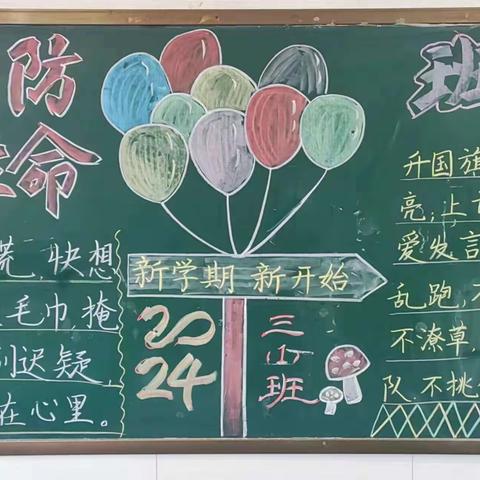 防
命
快想
毛巾,掩
迟疑,
在心里。
新学期 新开始
2024
三(1)班
班
升国旗
亮,上
爱发言
乱跑,不
不潦草,
队,不挑